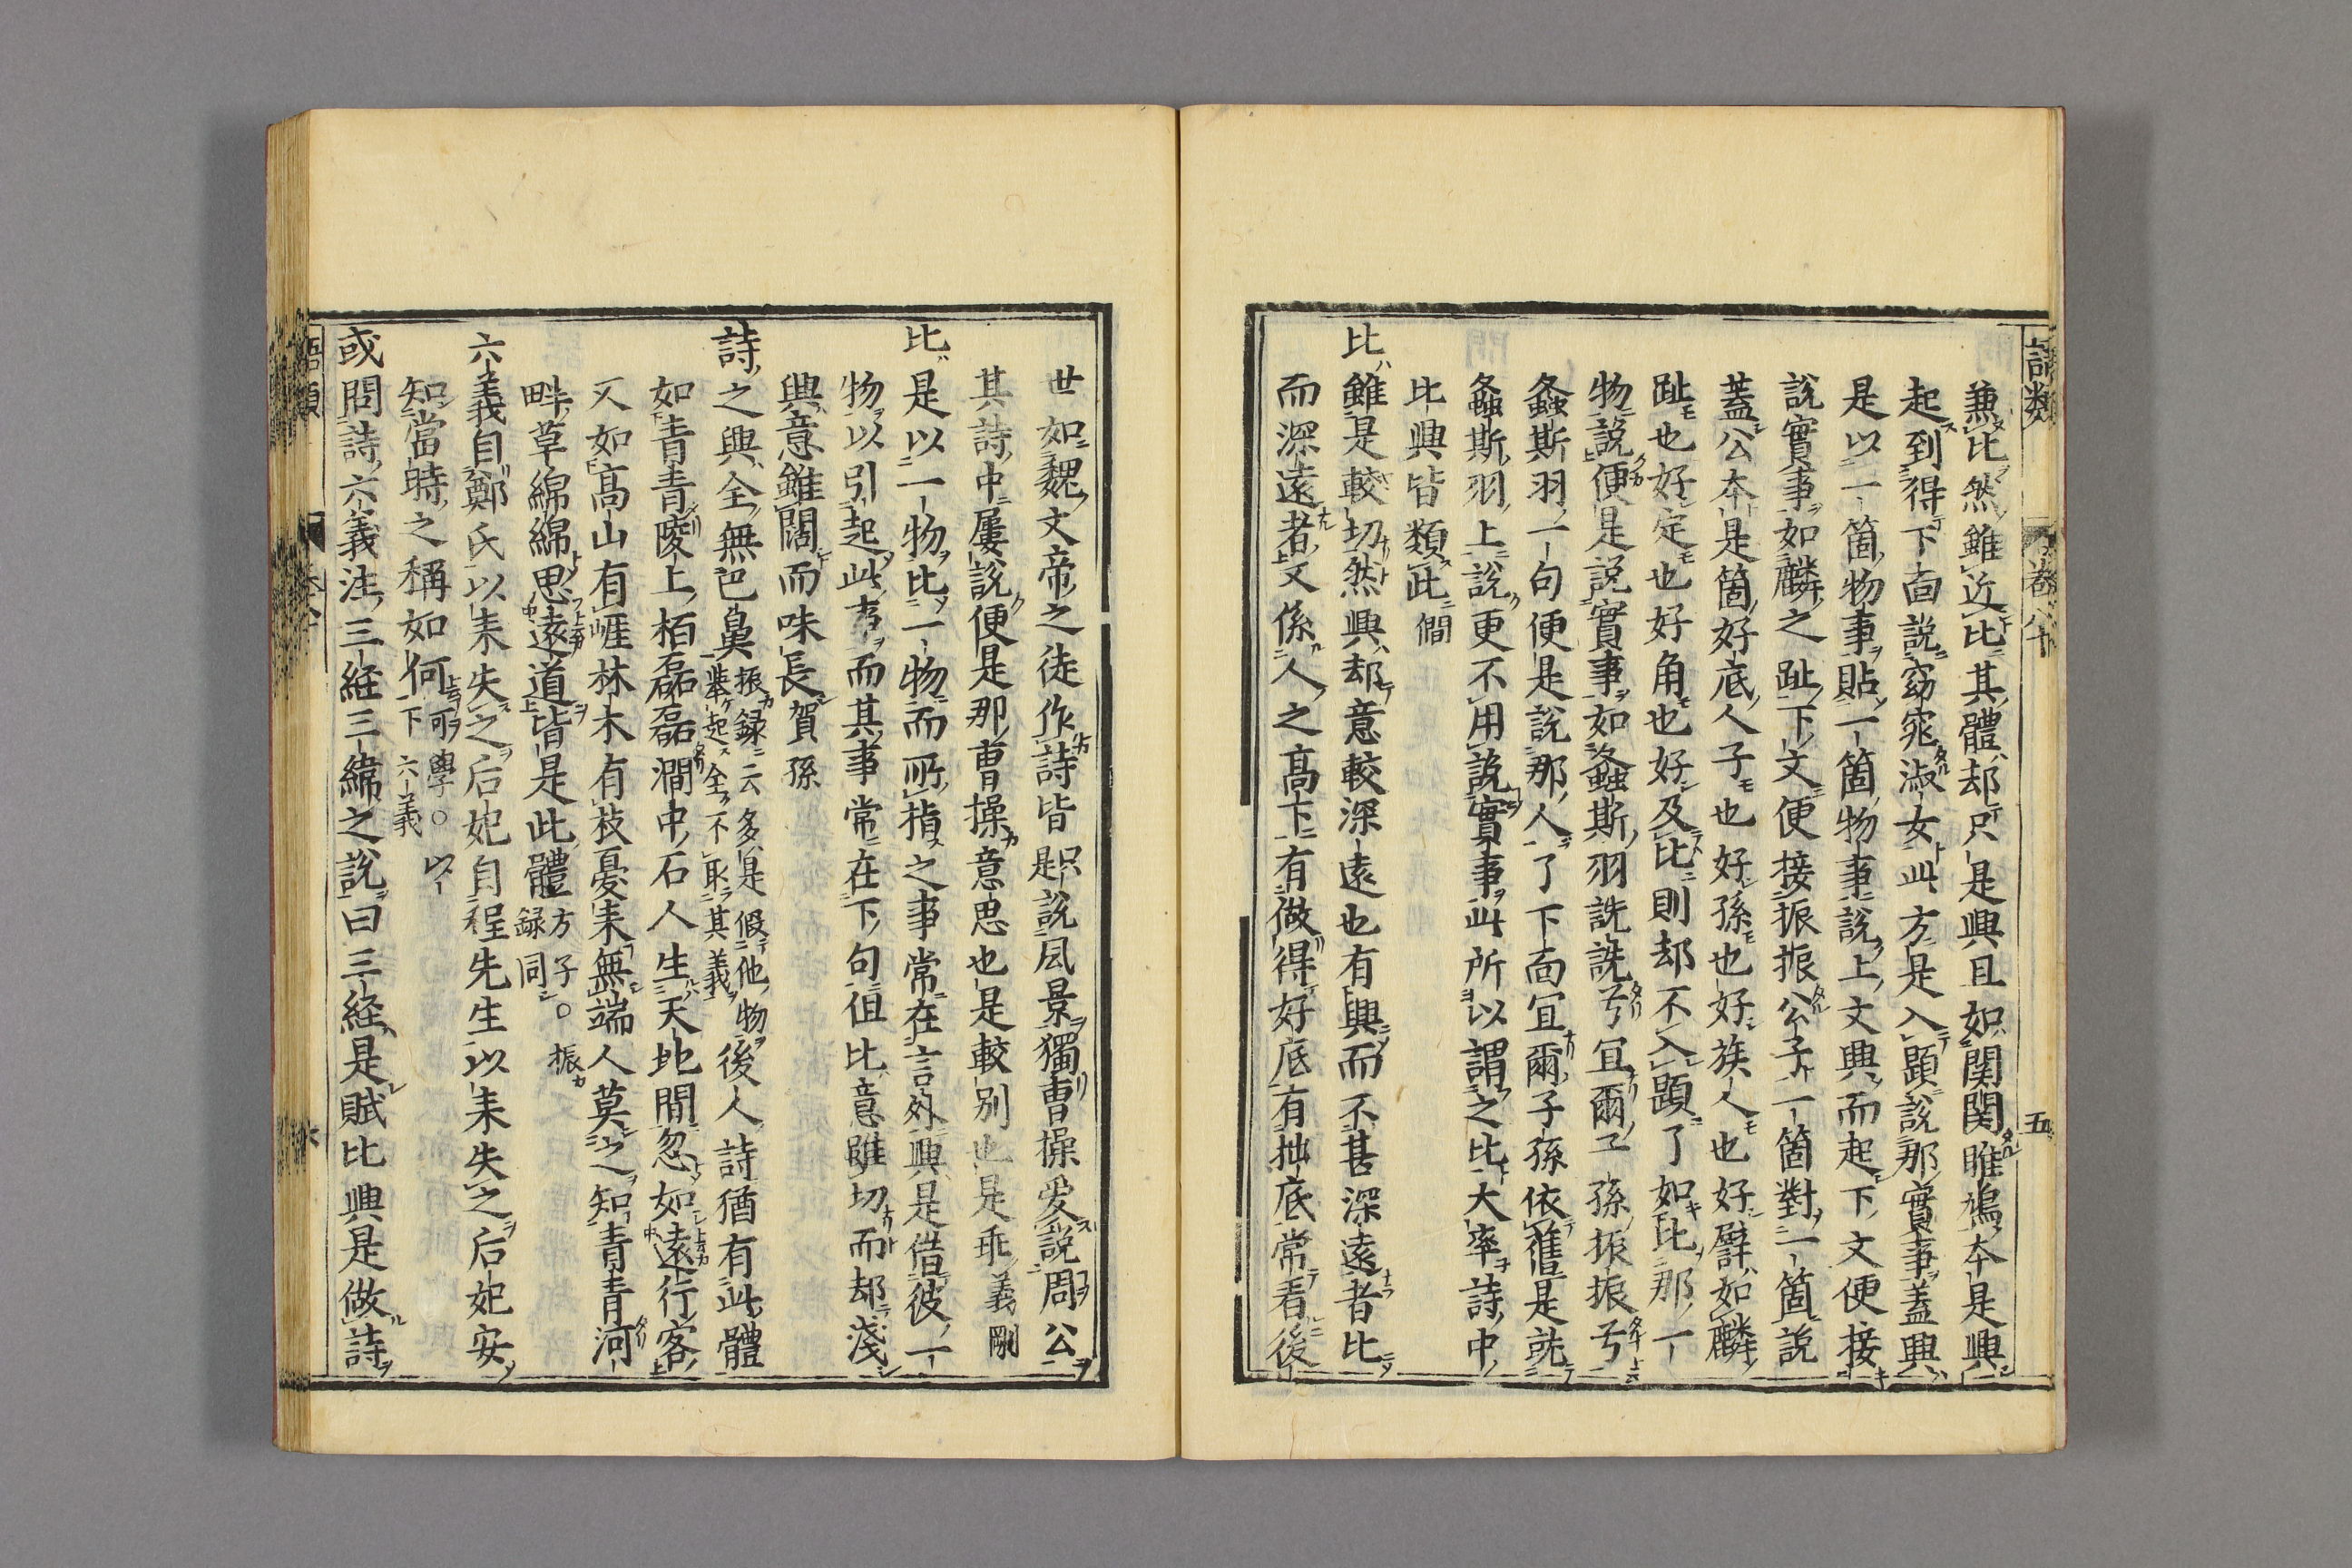 兼比然雖近比其體却只是興且如関関雎鳩夲是興
起到得下面説窈窕淑女此方是入題説那實事蓋興
是以一箇物事貼一箇物事説上文興而起下文便接
説實事如麟之趾下文便接振振公子一箇對一箇説
蓋公夲是箇好底人子也好孫也好族人也好譬如麟
趾也好定也好角也好及比則却不入題了如比那一
物説便是説實事如螽斯羽詵詵兮冝爾子孫振振兮
螽斯羽一句便是説那人了下面冝爾子孫依舊是就
螽斯羽上説更不用説實事此所以謂之比大率詩中
比興皆類此僴
比雖是較切然興却意較深遠也有興而不甚深遠者比
而深遠者又係人之髙下有做得好底有拙底常看後
世如魏文帝之徒作詩皆只是説風景獨曹操愛説周公
其詩中屢説便是那曹操意思也是較别也是乖義剛
比是以一物比一物而所指之事常在言外興是借彼一
物以引起此事而其事常在下句但比意雖切而却淺
興意雖闊而味長賀孫
詩之興全無巴鼻振録云多是假他物舉起全不取其義後人詩猶有此體
如青青陵上栢磊磊澗中石人生天地間忽如遠行客
又如髙山有崕林木有枝憂来無端人莫之知青青河
畔草綿綿思遠道皆是此體方子○振録同
六義自鄭氏以来失之后妃自程先生以来失之后妃安
知當時之稱如何可學○以下六義
或問詩六義注三経三緯之說曰三経是賦比興是做詩
語類 卷八十 五